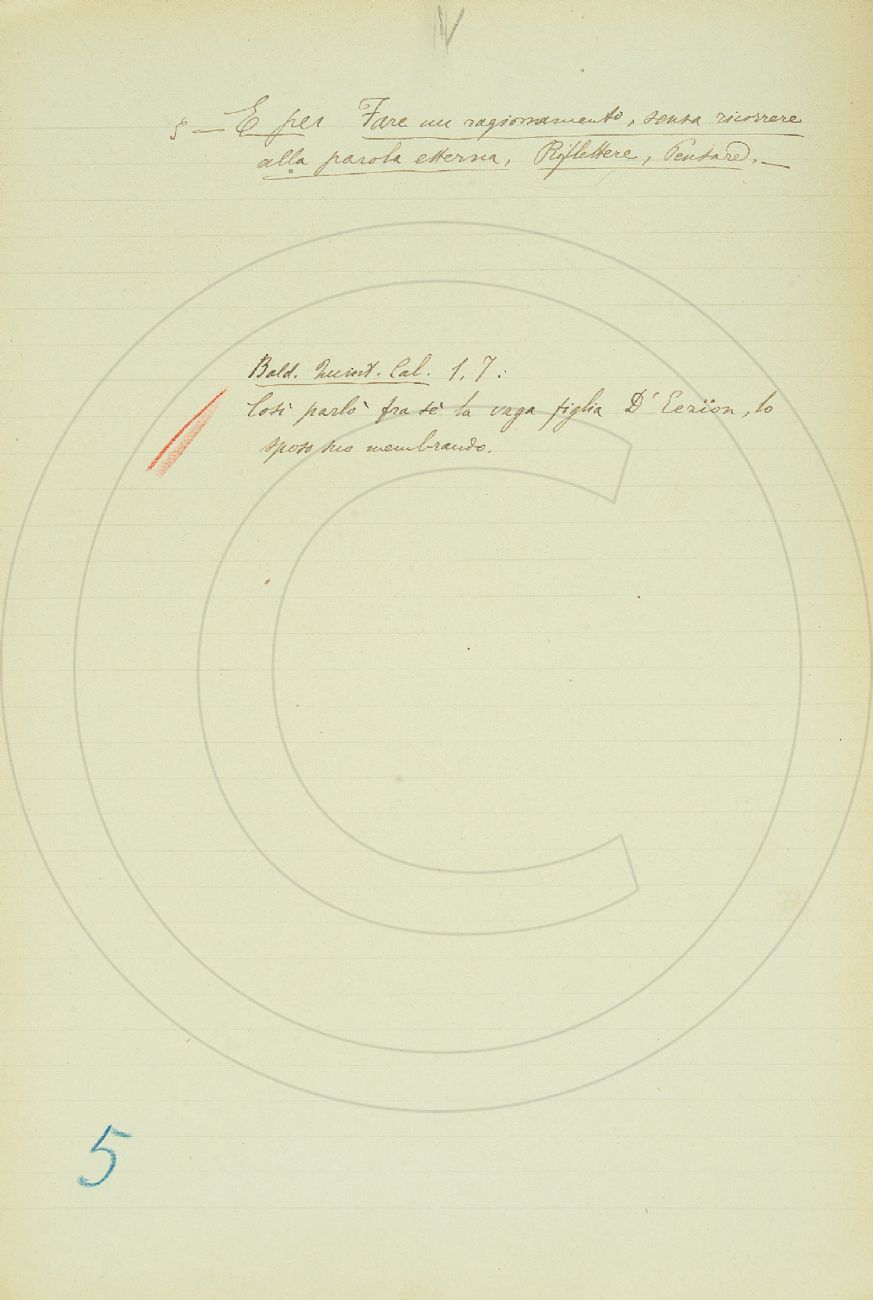 IV
§ — E per Fare un ragionamento, senza ricorrere
alla parola esterna, Riflettere, Pensare. —
Bald. Quint. Cal. 1, 7:
Così parlò fra sè la vaga figlia D' Eezïon, lo
sposo suo membrando.
5